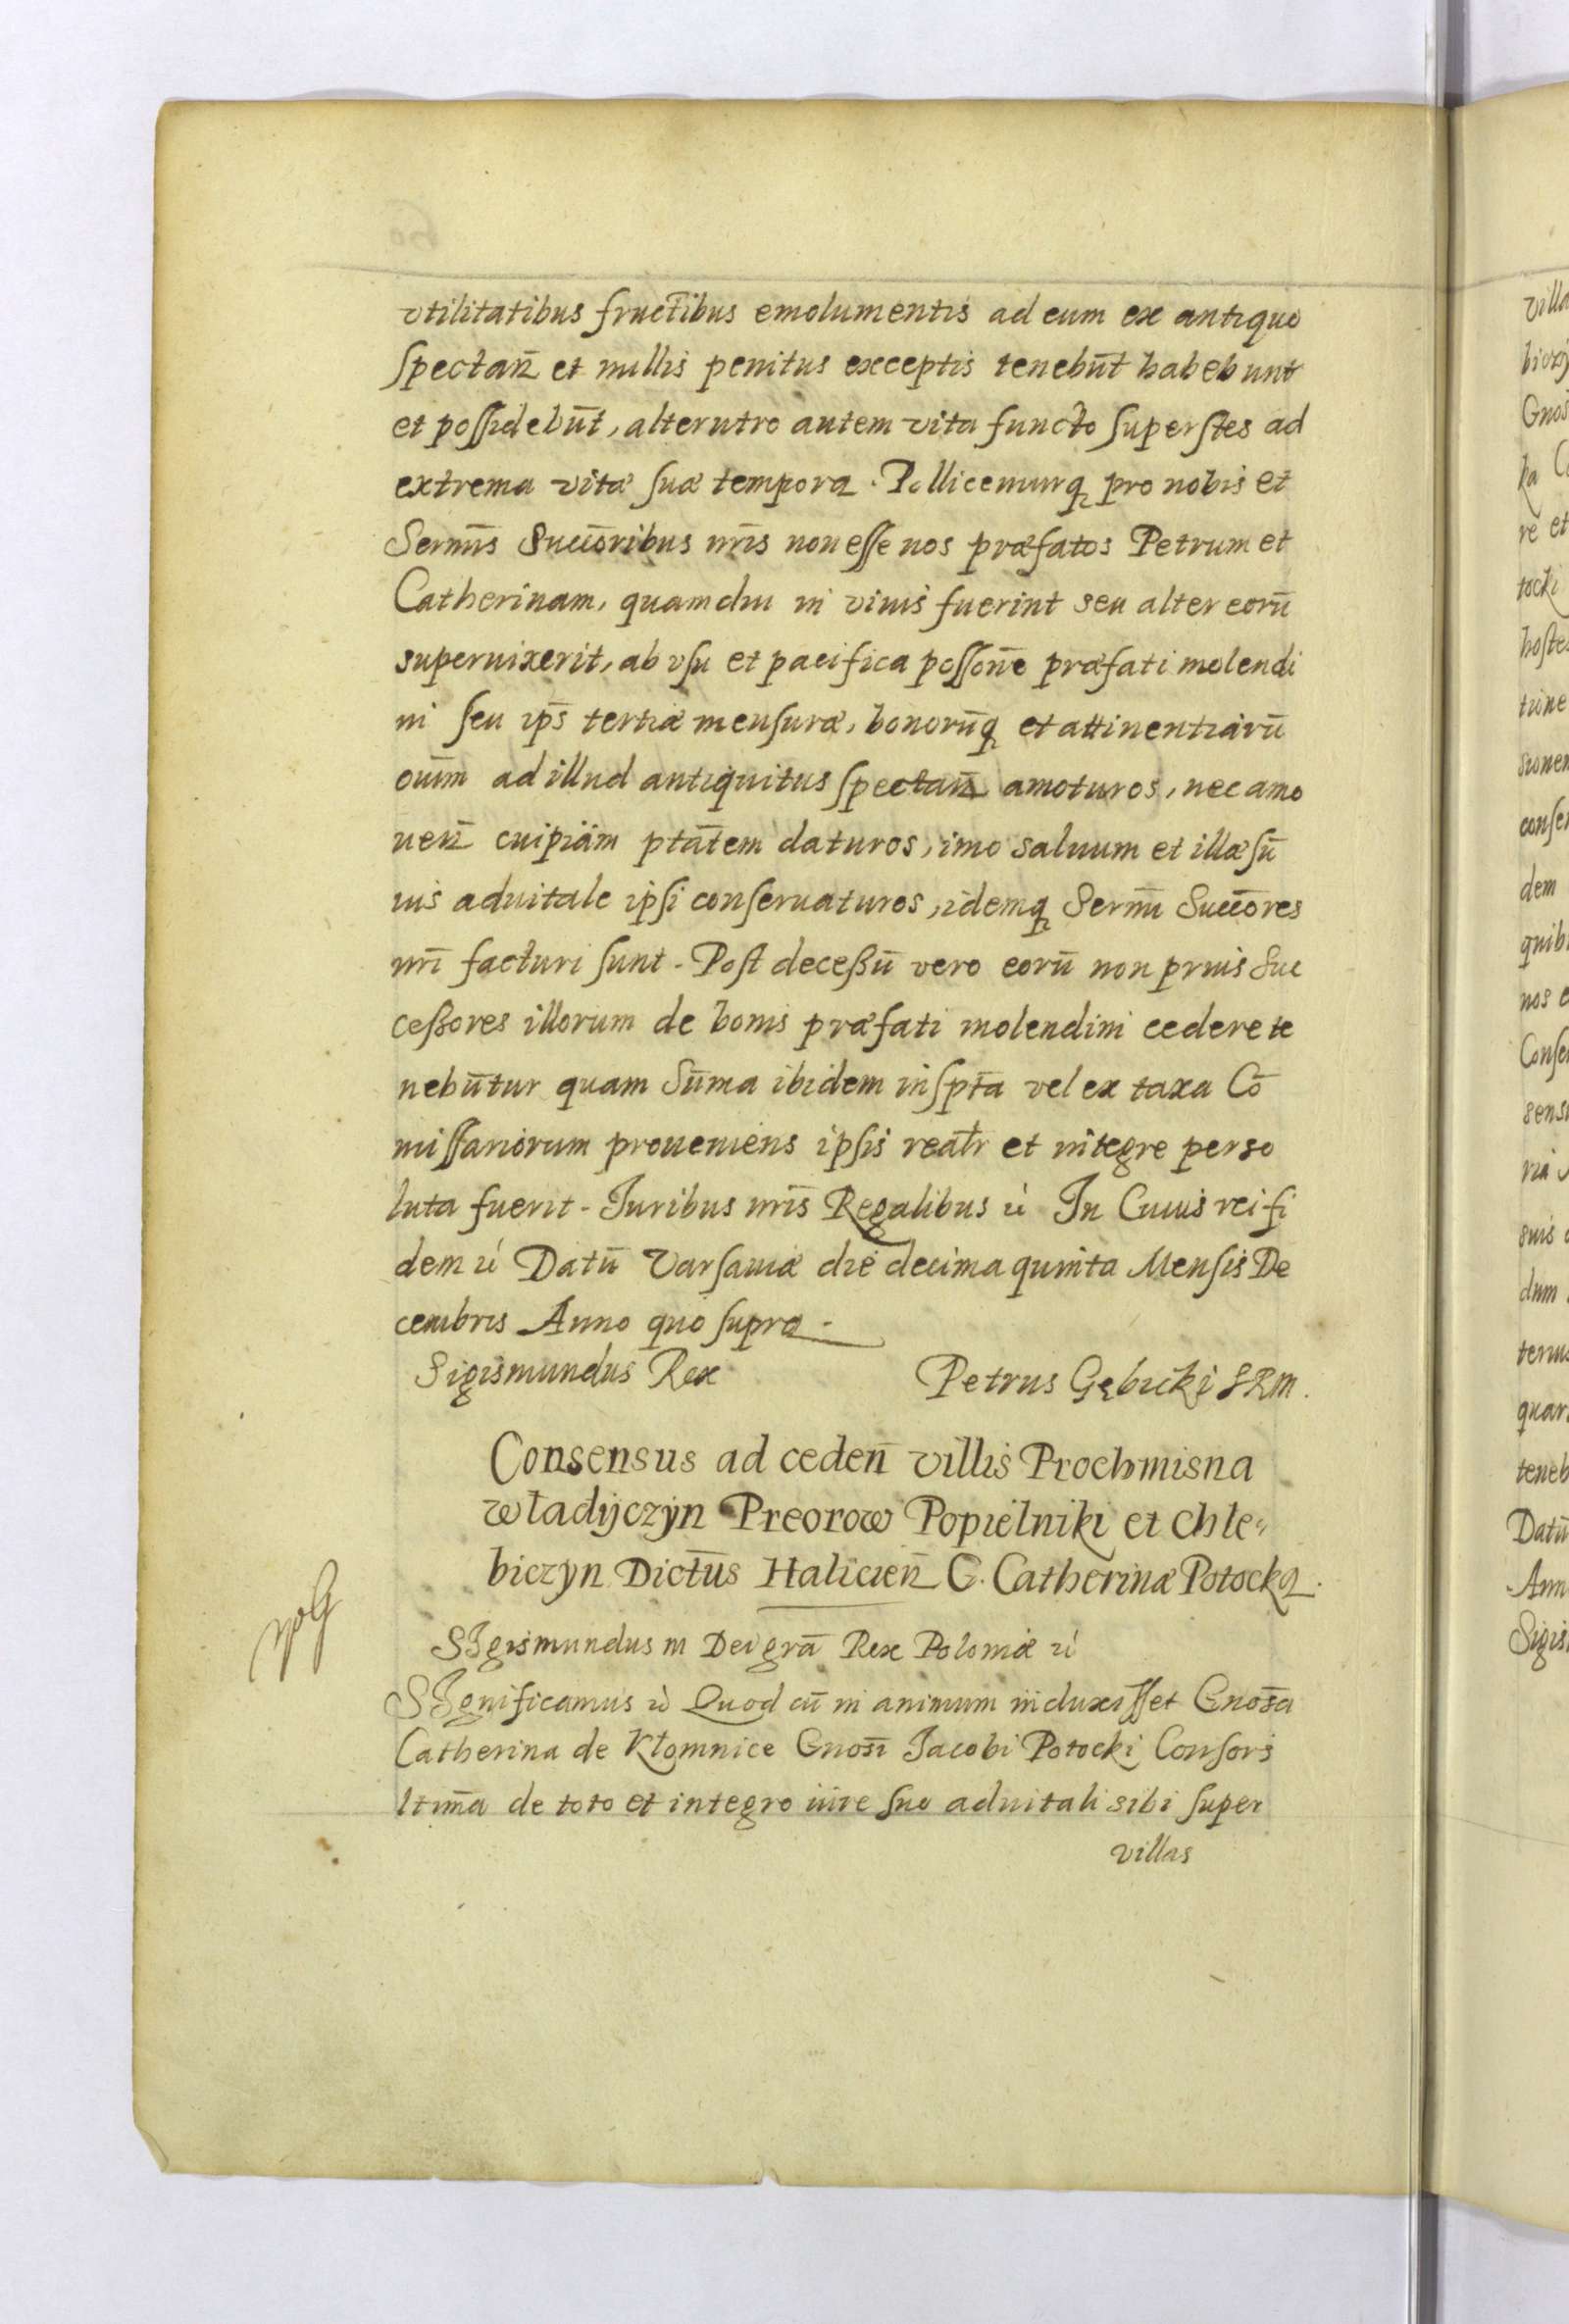 vtilitatibus fructibus emolumentis ad eum ex antiquo
spectan̄ et nullis penitus exceptis tenebūt habebunt
et possidebūt, alterutro autem vita functo superstes ad
extrema vitæ suæ tempora. Pollicemurq₃ pro nobis et
Sermīs Succōribus nr̄is non esse nos præfatos Petrum et
Catherinam, quamdiu in viuis fuerint seu alter eorū
superuixerit, ab vsu et pacifica possōne præfati molendi
ni seu ip̄s tertiæ mensuræ, bonorūq₃ et attinentiarū
oīum ad illud antiquitus spectan̄ amoturos, nec amo
uen̄ cuipiam ptātem daturos, imo saluum et illæsū
ius aduitale ipsi conseruaturos, idemq₃ Sermī Succōres
nr̄i facturi sunt. Post decessū vero eorū non prius Suc
cessores illorum de bonis præfati molendini cedere te
nebūtur quam Sūma ibidem inspt̄a vel ex taxa Cō
missariorum proueniens ipsis realr̄ et integre perso
luta fuerit. Iuribus nr̄is Regalibus ꝛć In Cuius rei fi
dem ꝛć Datū Varsauiæ die decima quinta Mensis De
cembris Anno quo supra.
Sigismundus Rex Petrus Gębicki SRM.
Consensus ad ceden̄ villis Prochnisna
władÿczÿn Preorow Popielniki et Chle„
biczyn Dictūs Halicien̄ G. Catherinæ Potocka.
SIgismundus III Dei grā Rex Poloniæ ꝛć
SIgnificamus ꝛć Quod cū in animum induxisset Gnosā
Catherina de Kłomnice Gnosī Jacobi Potocki Consors
ltimā de toto et integro iure suo aduitali sibi super
villas